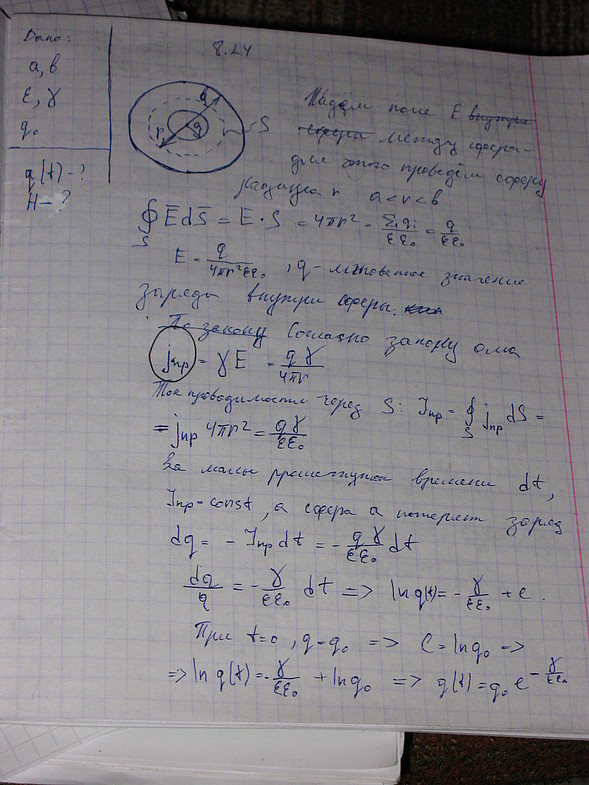 8.24
Дано:
a, b
ε, γ
q₀
q(t) - ?
H - ?
b
r
a
S
Найдём поле E внутри
сферы между сфера-
для этого проведём сферу
радиуса r a < r < b
∮_S E̅dS̅ = E · S = 4πr² = Σqᵢ/εε₀ = q/εε₀
E = q/4πr²εε₀ , q - мгновенное значение
заряда внутри сферы.
По закону Согласно закону ома
jпр = γE = qγ/4πr
Ток проводимости через S: Iпр = ∮_S jпр dS =
= jпр 4πr² = qγ/εε₀
За малый промежуток времени dt,
Iпр = const, а сфера a потеряет заряд
dq = - Iпр dt = - qγ/εε₀ dt
dq/q = - γ/εε₀ dt => ln q(t) = - γ/εε₀ + c .
При t=0, q=q₀ => C = ln q₀ =>
=> ln q(t) = - γ/εε₀ + ln q₀ => q(t) = q₀ e^(- γ/εε₀)